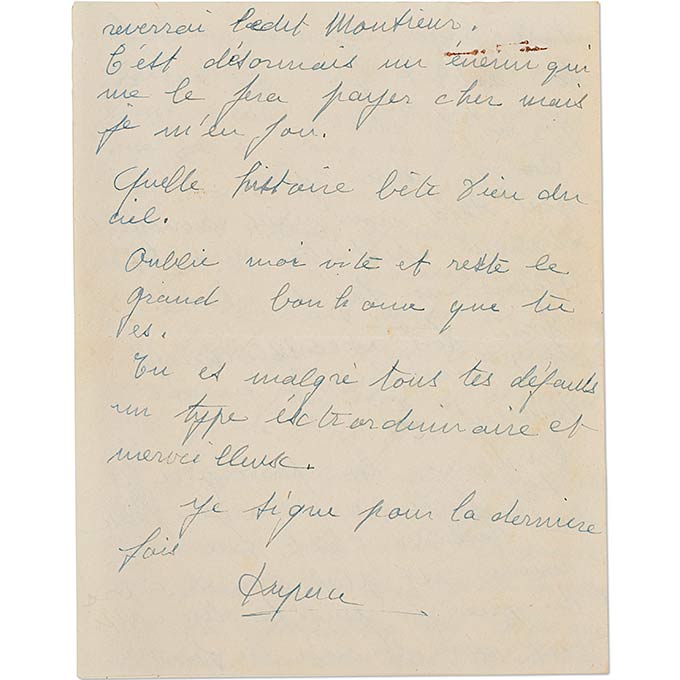 reverrai ledit Montieur.
C'est désormais un énemi qui
me le fera payer cher mais
je m'en fou.
Quelle histoire bête Dieu du
ciel.
Oublie moi vite et reste le
grand bonhome que tu
es.
Tu es malgré tous tes défauts
un type éxctraordinnaire et
merveilleux.
Je signe pour la derniere
fois